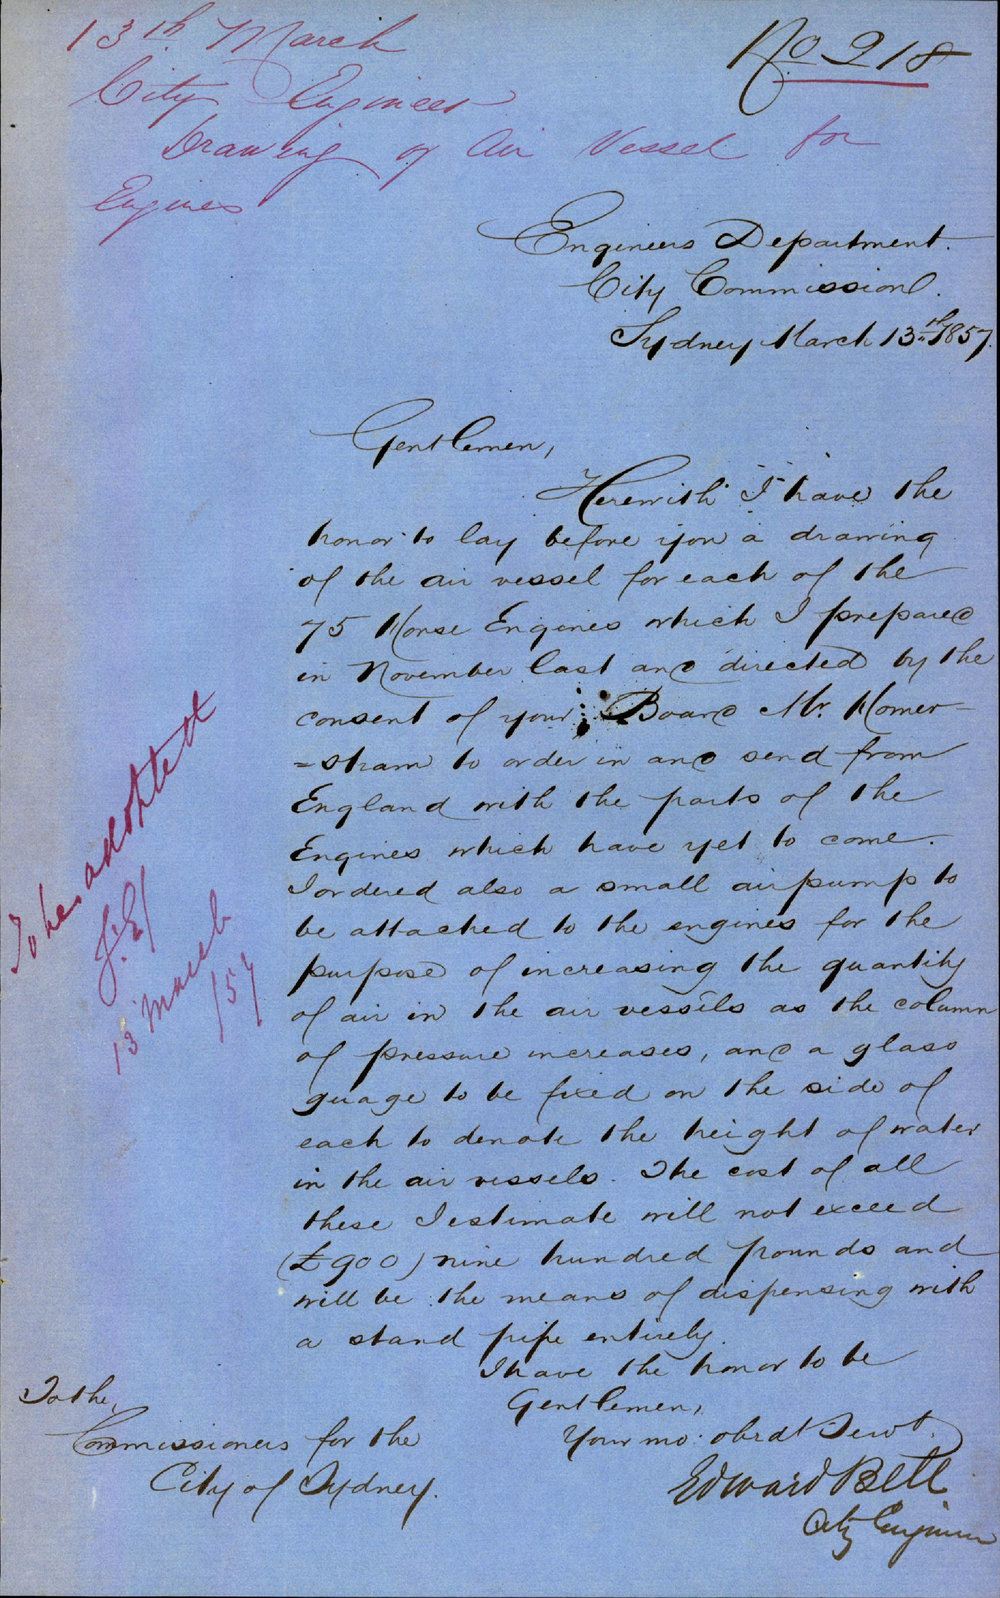 13th March
No 218
City Engineer
Drawing of Air Vessel for
Engines
Engineers Department.
City Commission.
Sydney March 13th 1857.
Gentlemen,
Herewith I have the
honor to lay before you a drawing
of the air vessel for each of the
75 Horse Engines which I prepared
in November last and directed by the
consent of your Board Mr. Homer-
=sham to order in and send from
England with the parts of the
Engines which have yet to come.
I ordered also a small airpump to
be attached to the engines for the
purpose of increasing the quantity
of air in the air vessels as the column
of pressure increases, and a glass
guage to be fixed on the side of
each to denote the height of water
in the air vessels. The cost of all
these I estimate will not exceed
(£900) nine hundred pounds and
will be the means of dispensing with
a stand pipe entirely.
I have the honor to be
Gentlemen,
Your mo: obedt Servt.
Edward Bell
City Engineer
To the,
Commissioners for the
City of Sydney.
To be
13 March
/57